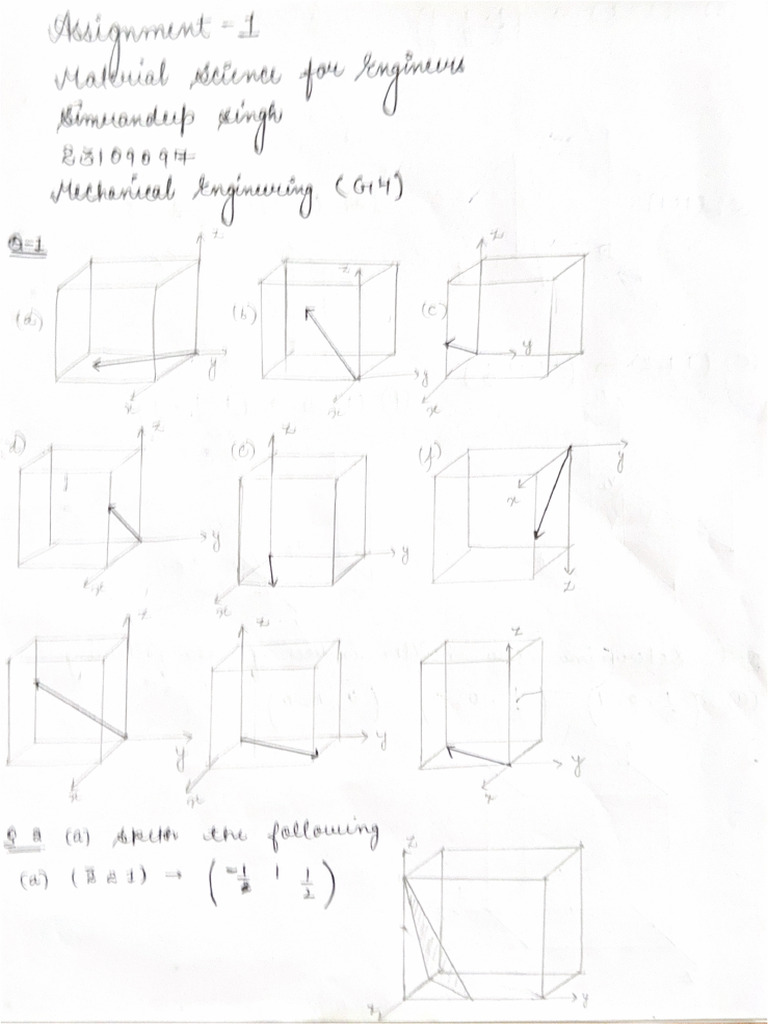 Assignment - 1
Material Science for Engineers
Simrandeep Singh
23109097
Mechanical Engineering (G-4)
Q-1
z
z
z
(a)
(b)
(c)
y
y
y
x
x
x
d)
z
(e)
z
(f)
y
y
y
x
x
x
z
z
z
z
y
y
y
x
x
x
Q 2 (a) Sketch the following
(a) (2̄ 2 1) → (-1/2 1 1/2)
z
y
x